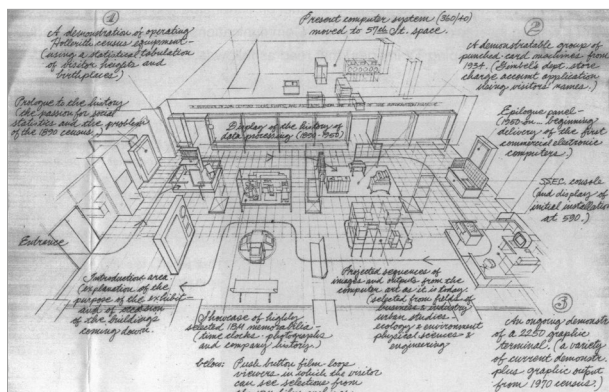 1
A demonstration of operating
Hollerith census equipment-
(using a statistical tabulation
of visitor heights and
birthplaces.)
Present computer system (360/40)
moved to 57th St. space.
2
A demonstratable group of
punched-card machines from
1934. (Gimbels dept. store
charge account application
using visitors' names.)
Prologue to the history
(the passion for social
statistics and the problem
of the 1890 census.)
Display of the history of
data processing (1890-1950)
Epilogue panel-
beginning
delivery of the first
commercial electronic
computers.)
SSEC console
(and display of
initial installation
at 590.)
Entrance
Introduction area
(explanation of the
purpose of the exhibit
and of occasion
of the buildings
coming down.
Showcase of highly
selected memorabilia-
(time clocks-photographs
and company history)
Projected sequences of
images and outputs from the
computer art as it is today.
(selected from fields of
business & industry
urban studies-
ecology & environment
physical sciences &
engineering
3
An ongoing demonstr
of a 2250 graphic
terminal. (a variety
of current demonstr
plus graphic output
from 1970 census)
below: Push button film loop
viewers in which the visitor
can see selections from